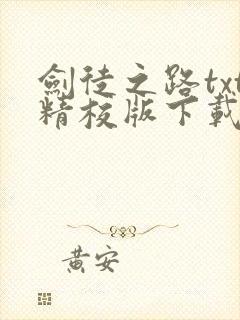 劍徒之路txt
精校版下載
黃安